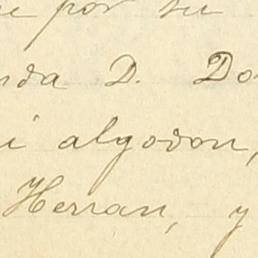 por su
nda D. Do
i algodon,
Herran, y